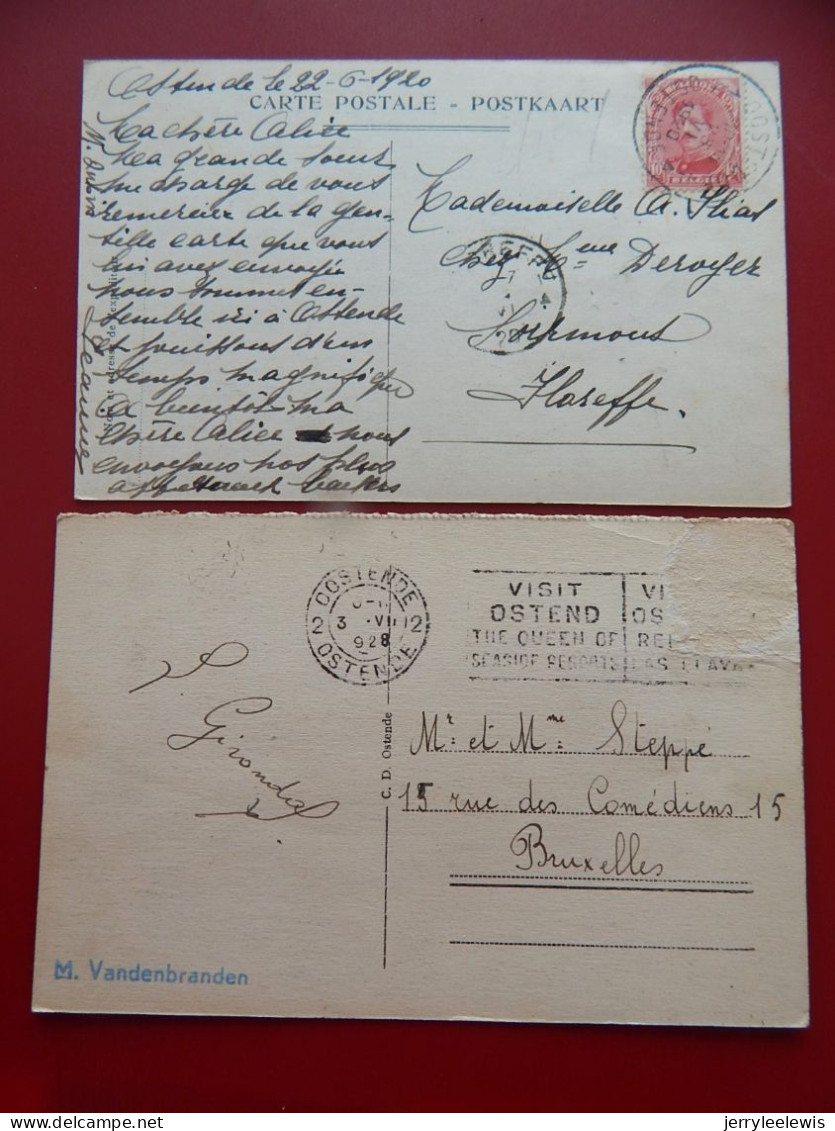 Ostende le 22-6-1920
CARTE POSTALE - POSTKAART
Ma chère Alice
Ma grande soeur
me charge de vous
remercier de la gen-
tille carte que vous
lui avez envoyée
nous sommes en-
semble ici à Ostende
et jouissons d'un
temps magnifique
à bientôt ma
chère Alice nous
envoyons nos plus
affectueux baisers
Jeanne
Nom et adresse de l'expéditeur
OOST
BELGIE
Mademoiselle A.
Chez Mme Deroyer
Floreffe.
OOSTENDE
2 3 VII 2
928
OSTENDE
VISIT
OSTEND
THE QUEEN OF
SEASIDE RESORTS
VI
OS
REI
LAS PLAYA
C. D. Ostende
Mr et Mme Steppé
15 rue des Comédiens 15
Bruxelles
M. Vandenbranden
jerryleelewis